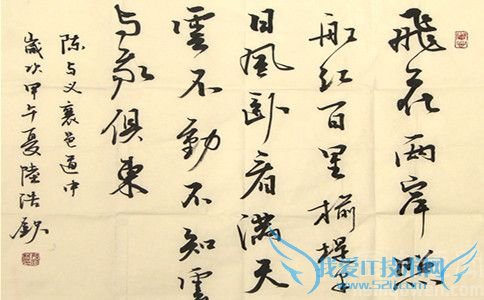 飛花兩岸照
船紅百里榆堤半
日風卧看滿天
雲不動不知雲
与我俱東
陈与义襄邑道中
歲次甲午夏陸浩
我爱IT技术网